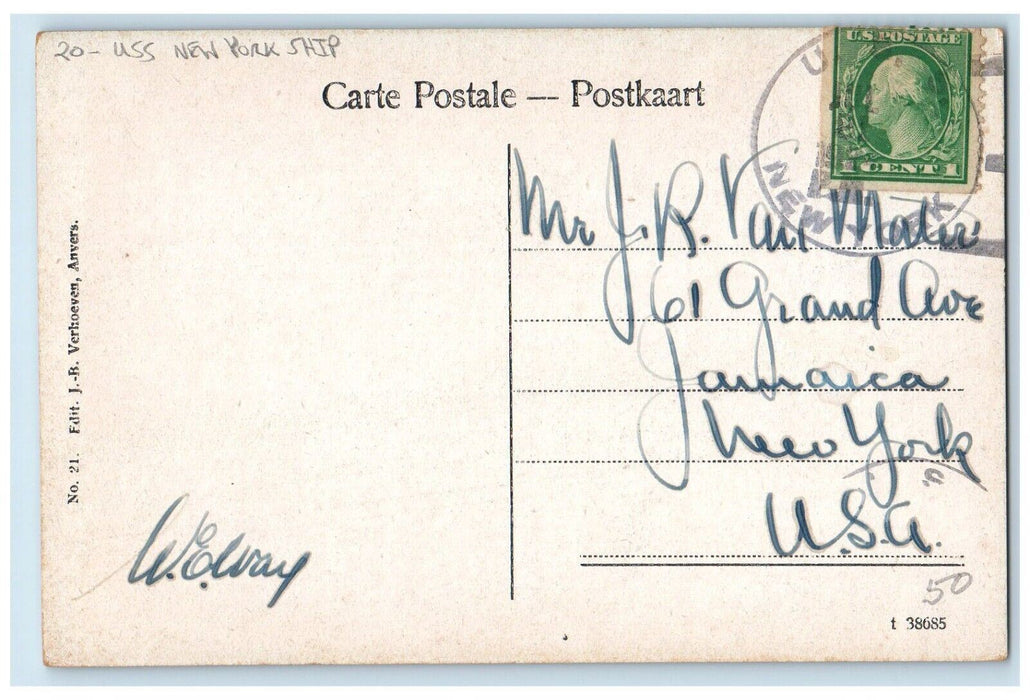 20- USS NEW YORK SHIP
Carte Postale — Postkaart
U.S. POSTAGE
1 CENT 1
NEW YORK
Mr J. B. Van Mater
61 Grand Ave
Jamaica
New York
U.S.A.
No. 21. Edit. J.-B. Verhoeven, Anvers.
50
t 38685